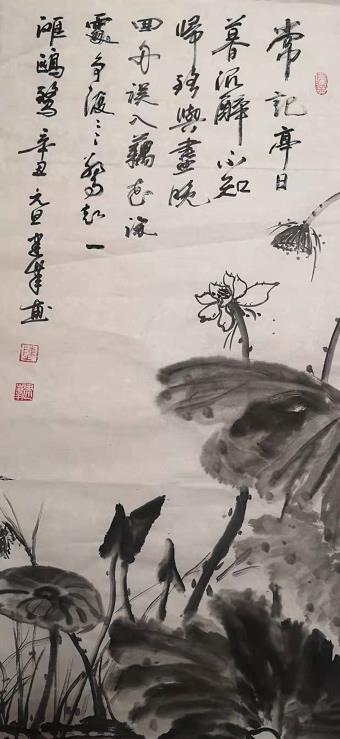 常記亭日
暮沉醉不知
歸路興盡晚
回舟誤入藕花深
處爭渡〻驚起一
灘鷗鷺 辛丑元旦建